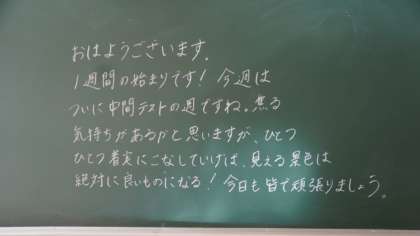 おはようございます。
1週間の始まりです！今週は
ついに中間テストの週ですね。焦る
気持ちがあるかと思いますが、ひとつ
ひとつ着実にこなしていけば、見える景色は
絶対に良いものになる！今日も皆で頑張りましょう。